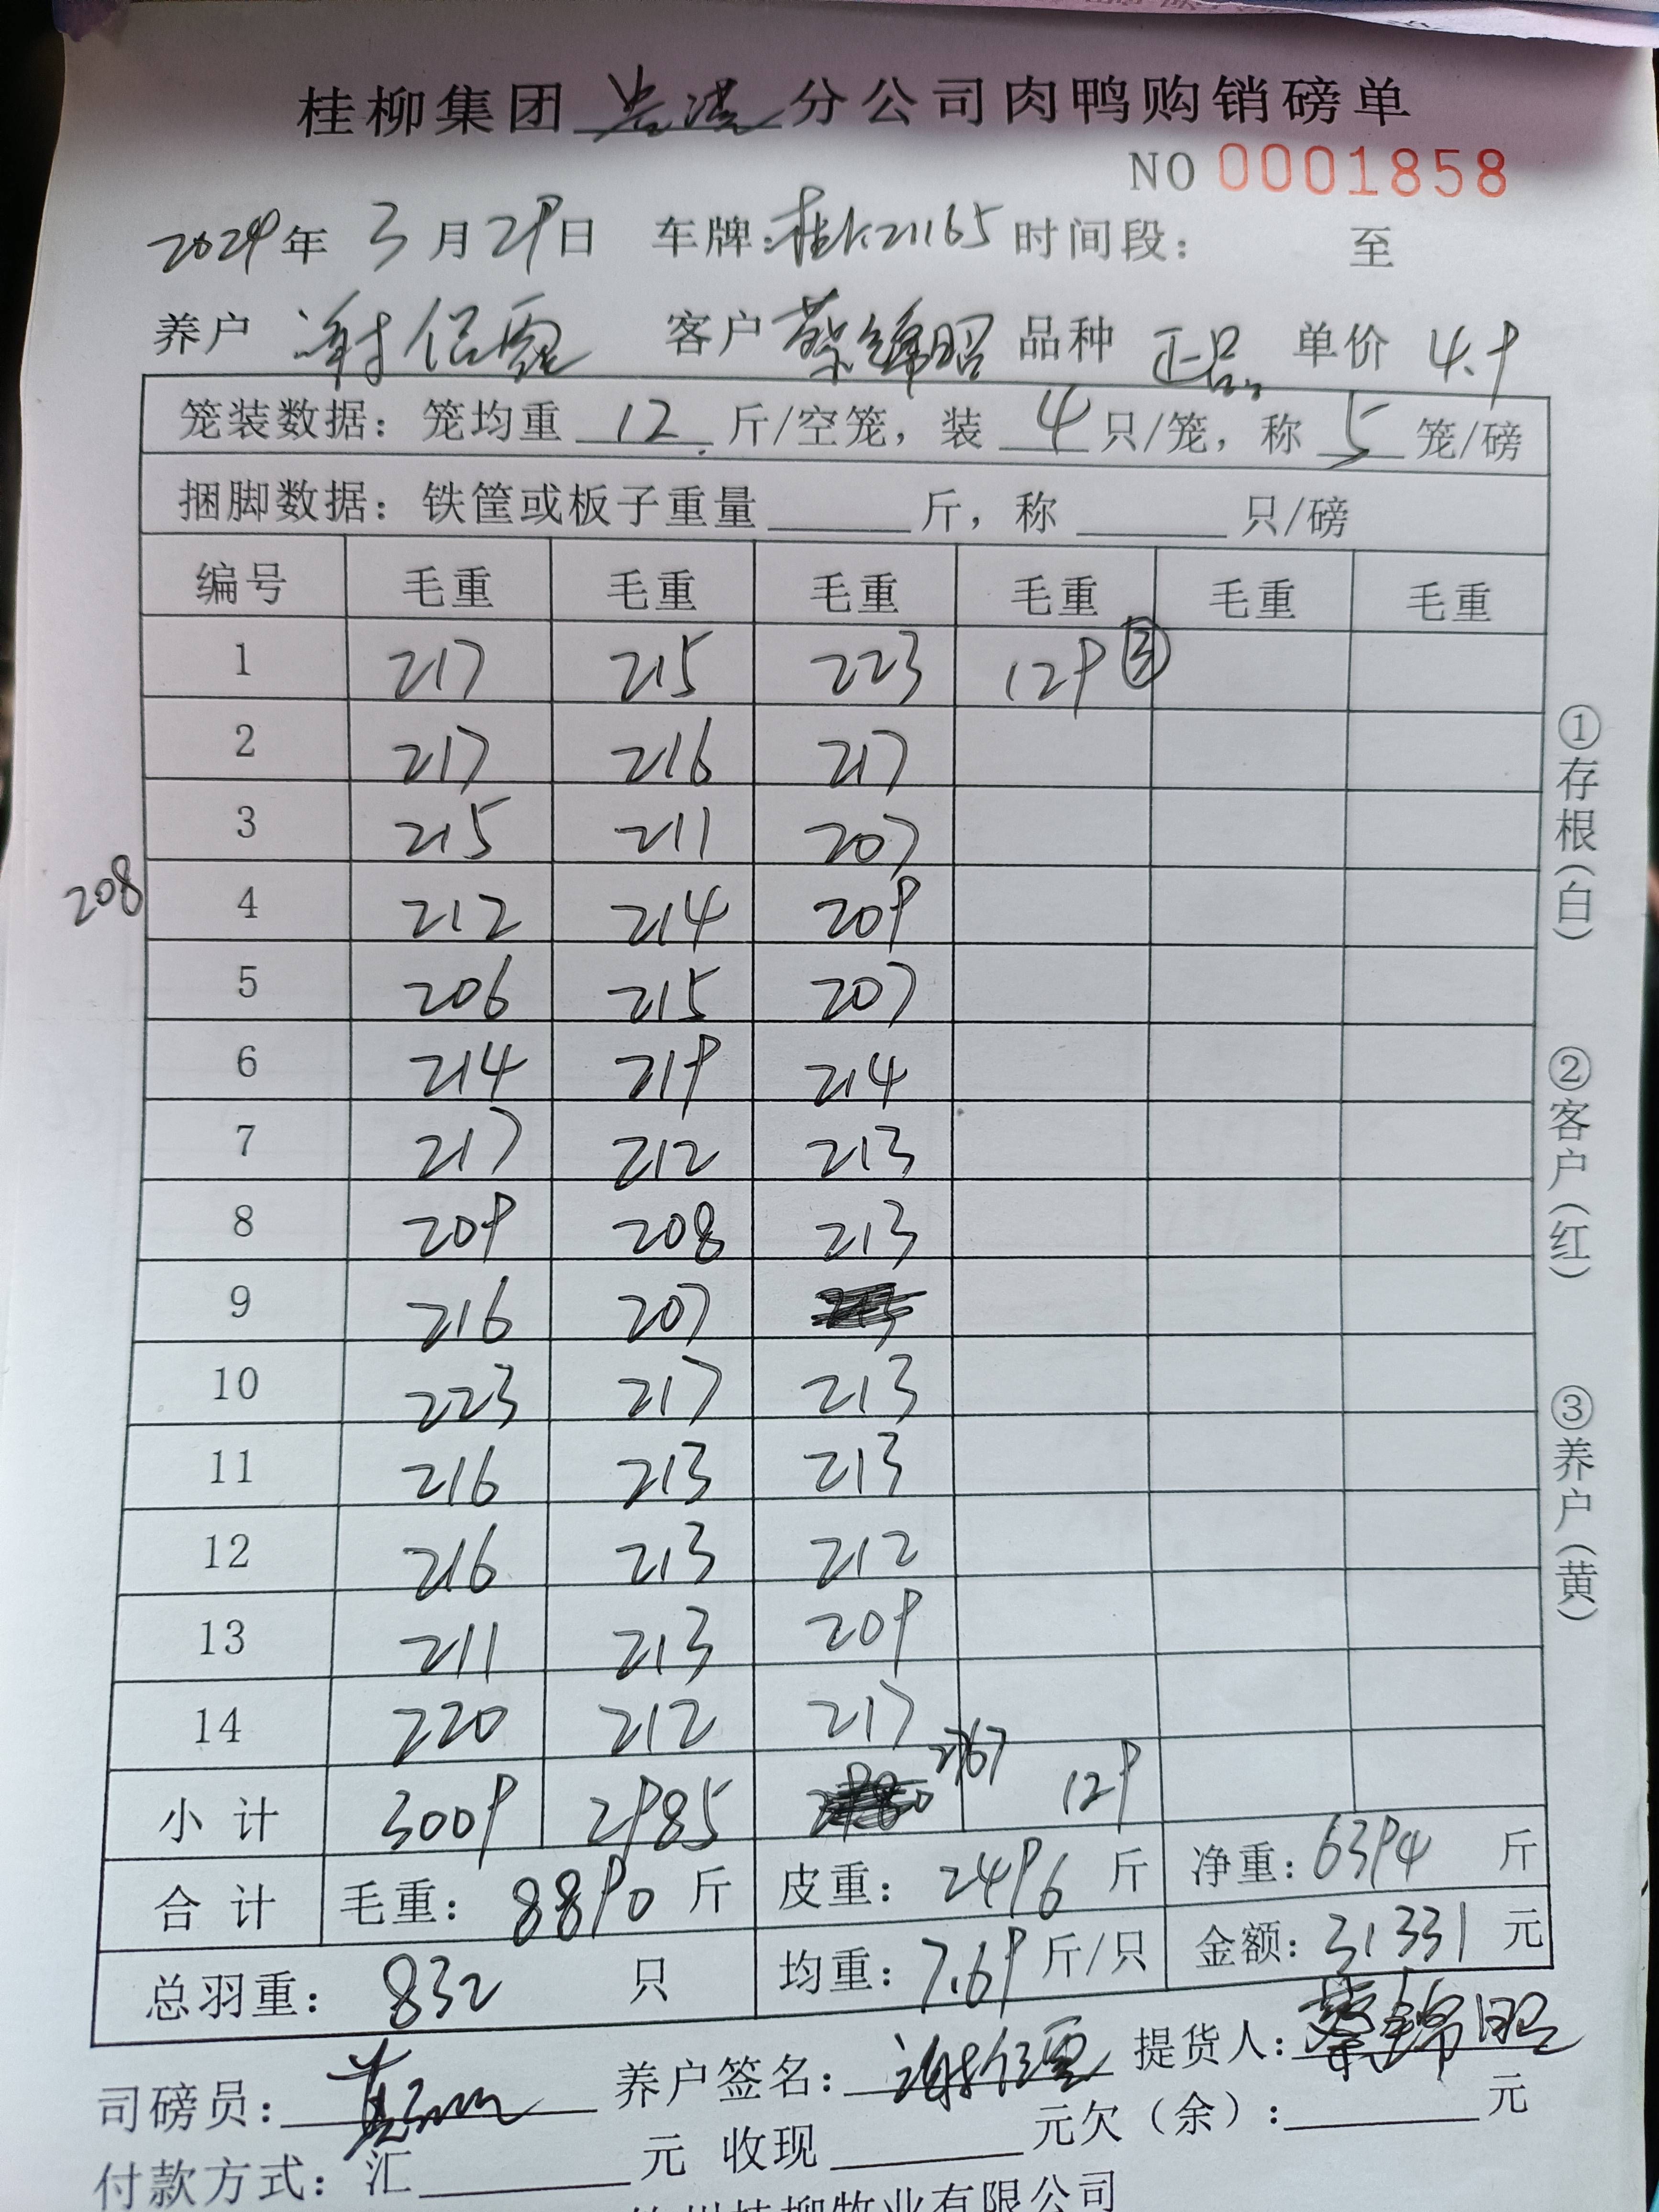 桂柳集团 分公司肉鸭购销磅单
NO 0001858
2024年 3月29日 车牌:桂K21165 时间段: 至
养户 谢 客户 蔡锦昭 品种 正品 单价 4.9
笼装数据: 笼均重 12 斤/空笼, 装 4 只/笼, 称 5 笼/磅
捆脚数据: 铁筐或板子重量 斤, 称 只/磅
编号 毛重 毛重 毛重 毛重 毛重 毛重
1 217 215 223 129 ③
2 217 216 217
3 215 211 207
208
4 212 214 209
5 206 215 207
6 214 219 214
7 217 212 213
8 209 208 213
9 216 207
10 223 217 213
11 216 213 213
12 216 213 212
13 211 213 209
14 220 212 217
小计 3009 2985 2767 129
合计 毛重: 8890 斤 皮重: 2496 斤 净重: 6394 斤
总羽重: 832 只 均重: 7.69 斤/只 金额: 31331 元
司磅员: 养户签名: 谢 提货人: 蔡锦昭
付款方式: 汇 元 收现 元欠(余): 元
桂柳牧业有限公司
①存根(白)
②客户(红)
③养户(黄)